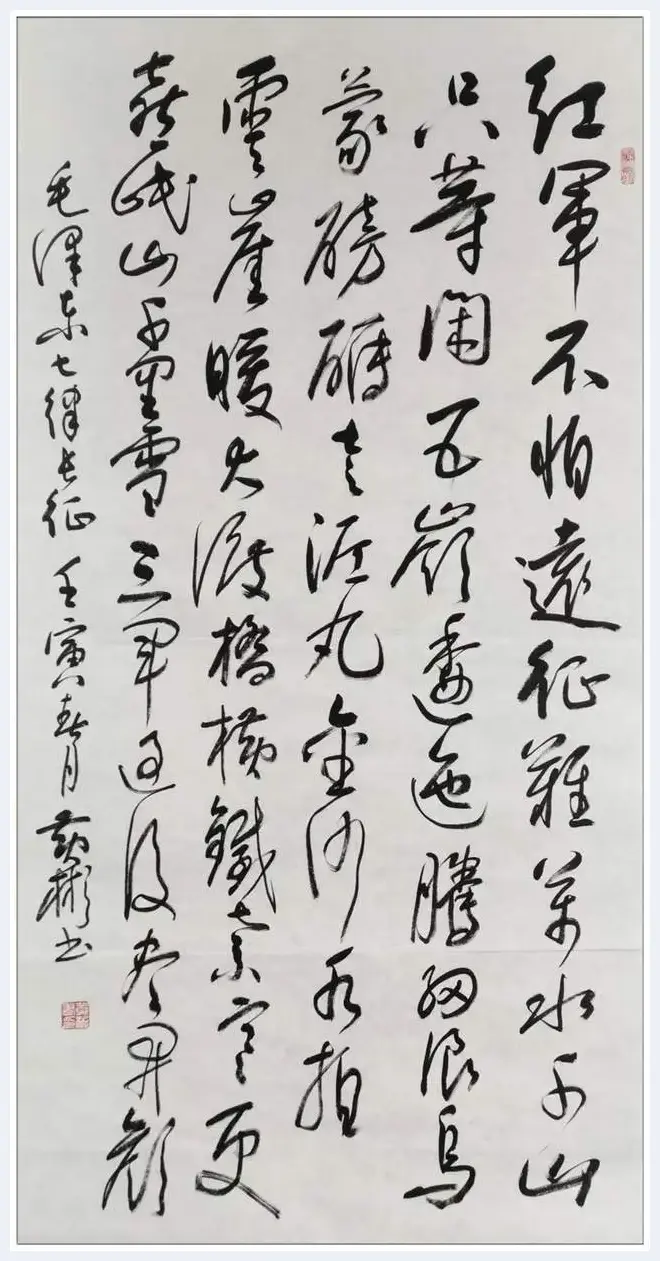 紅軍不怕遠征難萬水千山
只等閑五嶺逶迤騰細浪烏
蒙磅礴走泥丸金沙水拍
雲崖暖大渡橋橫鐵索寒更
喜岷山千里雪三軍過後盡開顏
毛澤東七律長征 壬寅春月 黃彬书